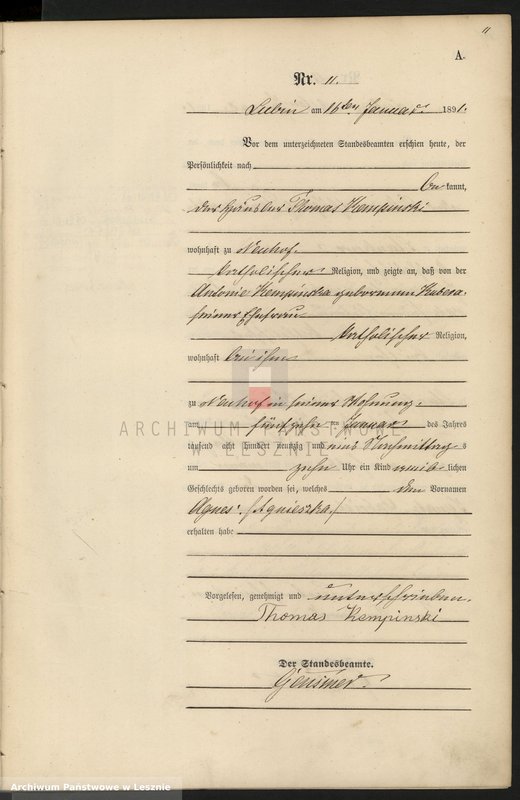 11
A.
Nr. 11.
Lubin am 16ten Januar 1891.
Vor dem unterzeichneten Standesbeamten erschien heute, der
Persönlichkeit nach
bekannt,
der Häusler Thomas Kempinski
wohnhaft zu Neuhof.
katholischer Religion, und zeigte an, daß von der
Antonie Kempinska geborenen Kubera
seiner Ehefrau
katholischer Religion,
wohnhaft bei ihm
zu Neuhof in seiner Wohnung,
am fünfzehn ten Januar des Jahres
tausend acht hundert neunzig und eins Nachmittag s
um zehn Uhr ein Kind weib lichen
Geschlechts geboren worden sei, welches den Vornamen
Agnes. /Agnieszka/
erhalten habe
Vorgelesen, genehmigt und unterschrieben.
Thomas Kempinski
Der Standesbeamte.
ARCHIWUM PAŃSTWOWE
W LESZNIE
Archiwum Państwowe w Lesznie